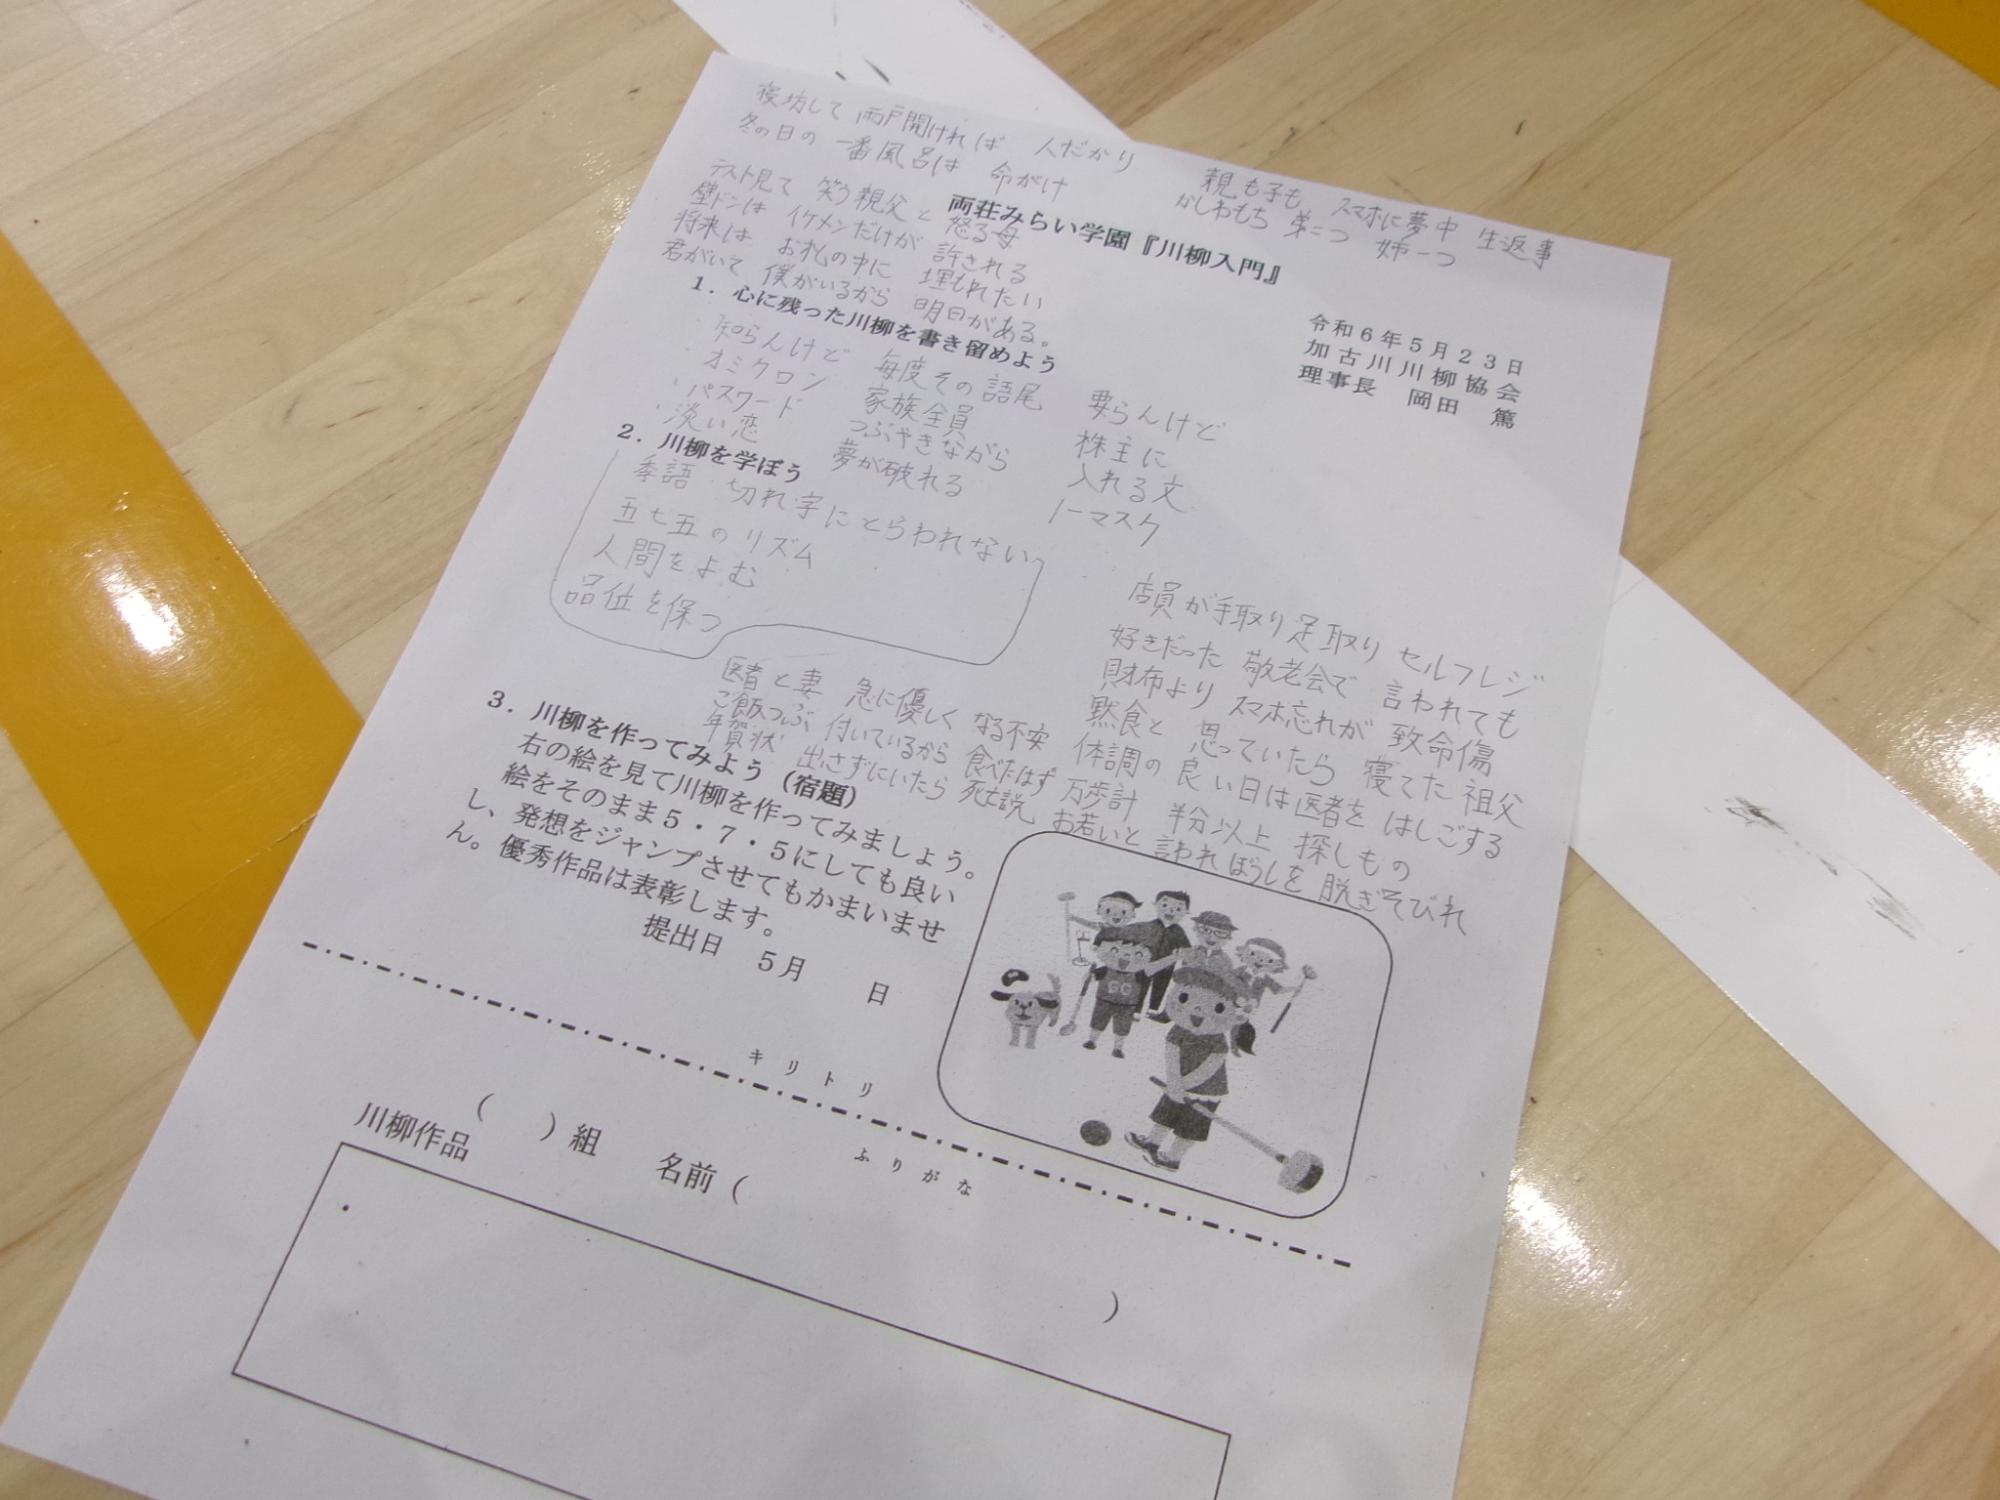 寝坊して 雨戸開ければ 人だかり
冬の日の 一番風呂は 命がけ
親も子も スマホに夢中 生返事
かしわもち 弟二つ 姉一つ
テスト見て 笑う親父と 怒る母
壁ドンは イケメンだけが 許される
将来は お札の中に 埋もれたい
君がいて 僕がいるから 明日がある。
両荘みらい学園『川柳入門』
令和6年5月23日
加古川川柳協会
理事長 岡田 篤
1．心に残った川柳を書き留めよう
・知らんけど 毎度その語尾 要らんけど
・オミクロン 家族全員 株主に
・パスワード つぶやきながら 入れる文
・淡い恋 夢が破れる ノーマスク
2．川柳を学ぼう
季語 切れ字にとらわれない
五七五のリズム
人間をよむ
品位を保つ
店員が手取り足取り セルフレジ
好きだった 敬老会で 言われても
財布より スマホ忘れが 致命傷
黙食と 思っていたら 寝てた祖父
体調の 良い日は医者を はしごする
万歩計 半分以上 探しもの
お若いと 言われ ぼうしを 脱ぎそびれ
医者と妻 急に優しく なる不安
ご飯つぶ 付いているから 食べたはず
年賀状 出さずにいたら 死亡説
3．川柳を作ってみよう（宿題）
右の絵を見て川柳を作ってみましょう。
絵をそのまま5・7・5にしても良い
し、発想をジャンプさせてもかまいませ
ん。優秀作品は表彰します。
提出日 5月 日
GG
キリトリ
ふりがな
（ ）組 名前（ ）
川柳作品